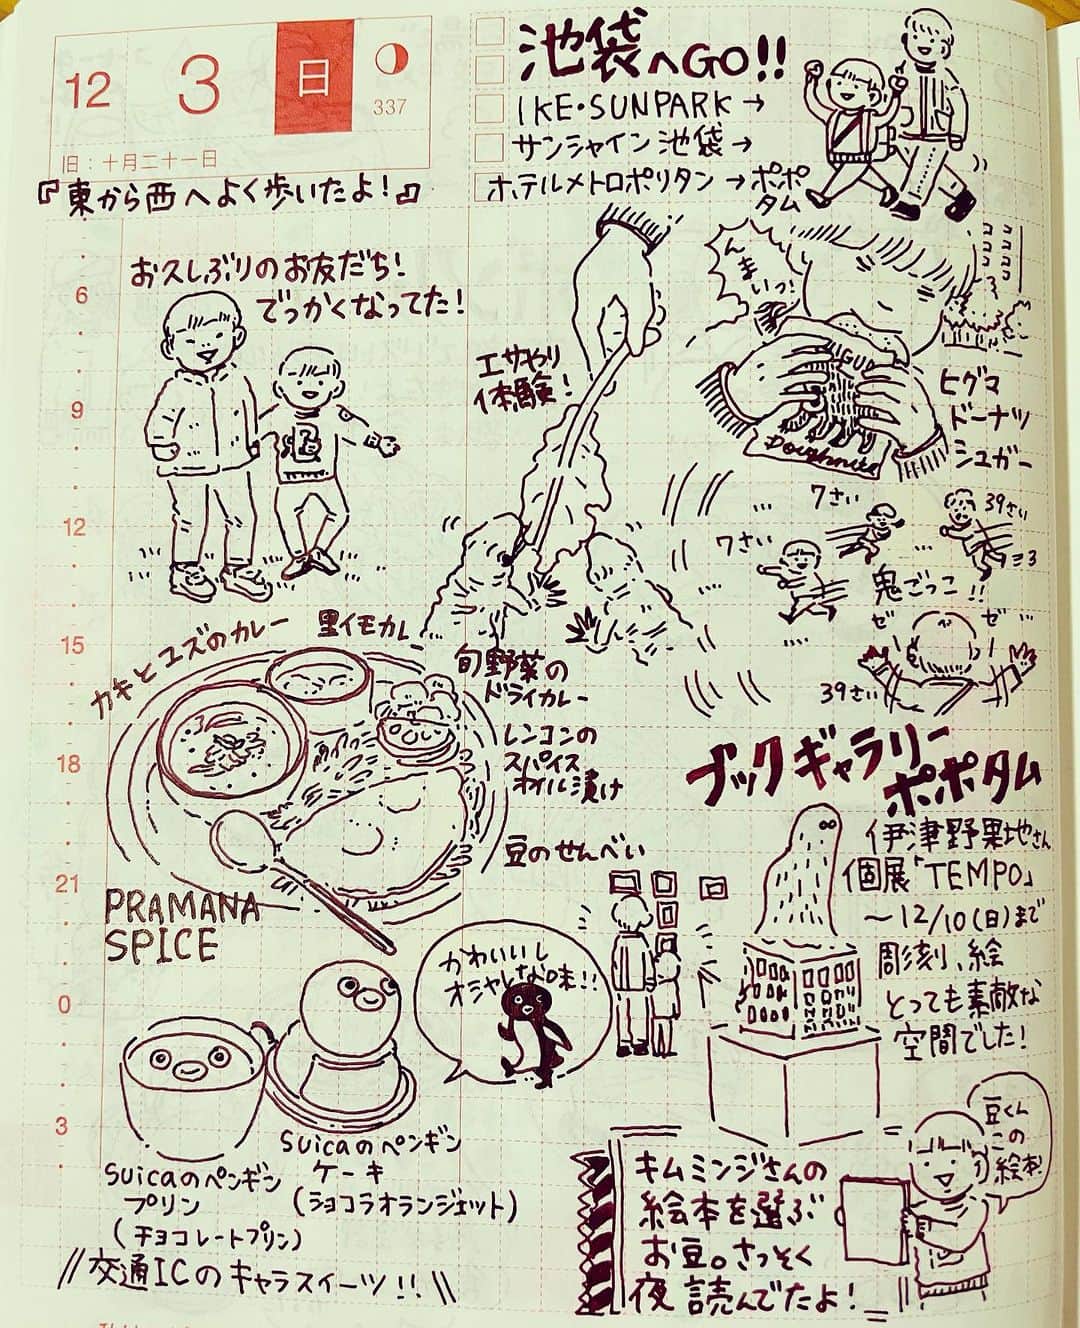 12 3 日
337
旧：十月二十一日
池袋へGO!!
IKE・SUNPARK→
サンシャイン池袋→
ホテルメトロポリタン→ポポタム
『東から西へよく歩いたよ！』
お久しぶりのお友だち！
でっかくなってた！
エサやり
体験！
んまいっ！
コココココ
コココ
Doughnuts
ヒグマ
ドーナツ
シュガー
7さい
39さい
7さい
鬼ごっこ!!
ゼ ゼ…
39さい
6
9
12
15
18
21
0
3
カキとユズのカレー
里イモカレ
旬野菜の
ドライカレー
レンコンの
スパイス
オイル漬け
豆のせんべい
PRAMANA
SPICE
ブックギャラリー
ポポタム
伊津野果地さん
個展「TEMPO」
～12/10(日)まで
彫刻、絵
とっても素敵な
空間でした！
かわいいし
オシャレな味!!
Suicaのペンギン
プリン
(チョコレートプリン)
Suicaのペンギン
ケーキ
(ショコラオランジェット)
//交通ICのキャラスイーツ!!\\
キムミンジさんの
絵本を選ぶ
お豆。さっそく
夜読んでたよ！
豆くん
この
絵本！